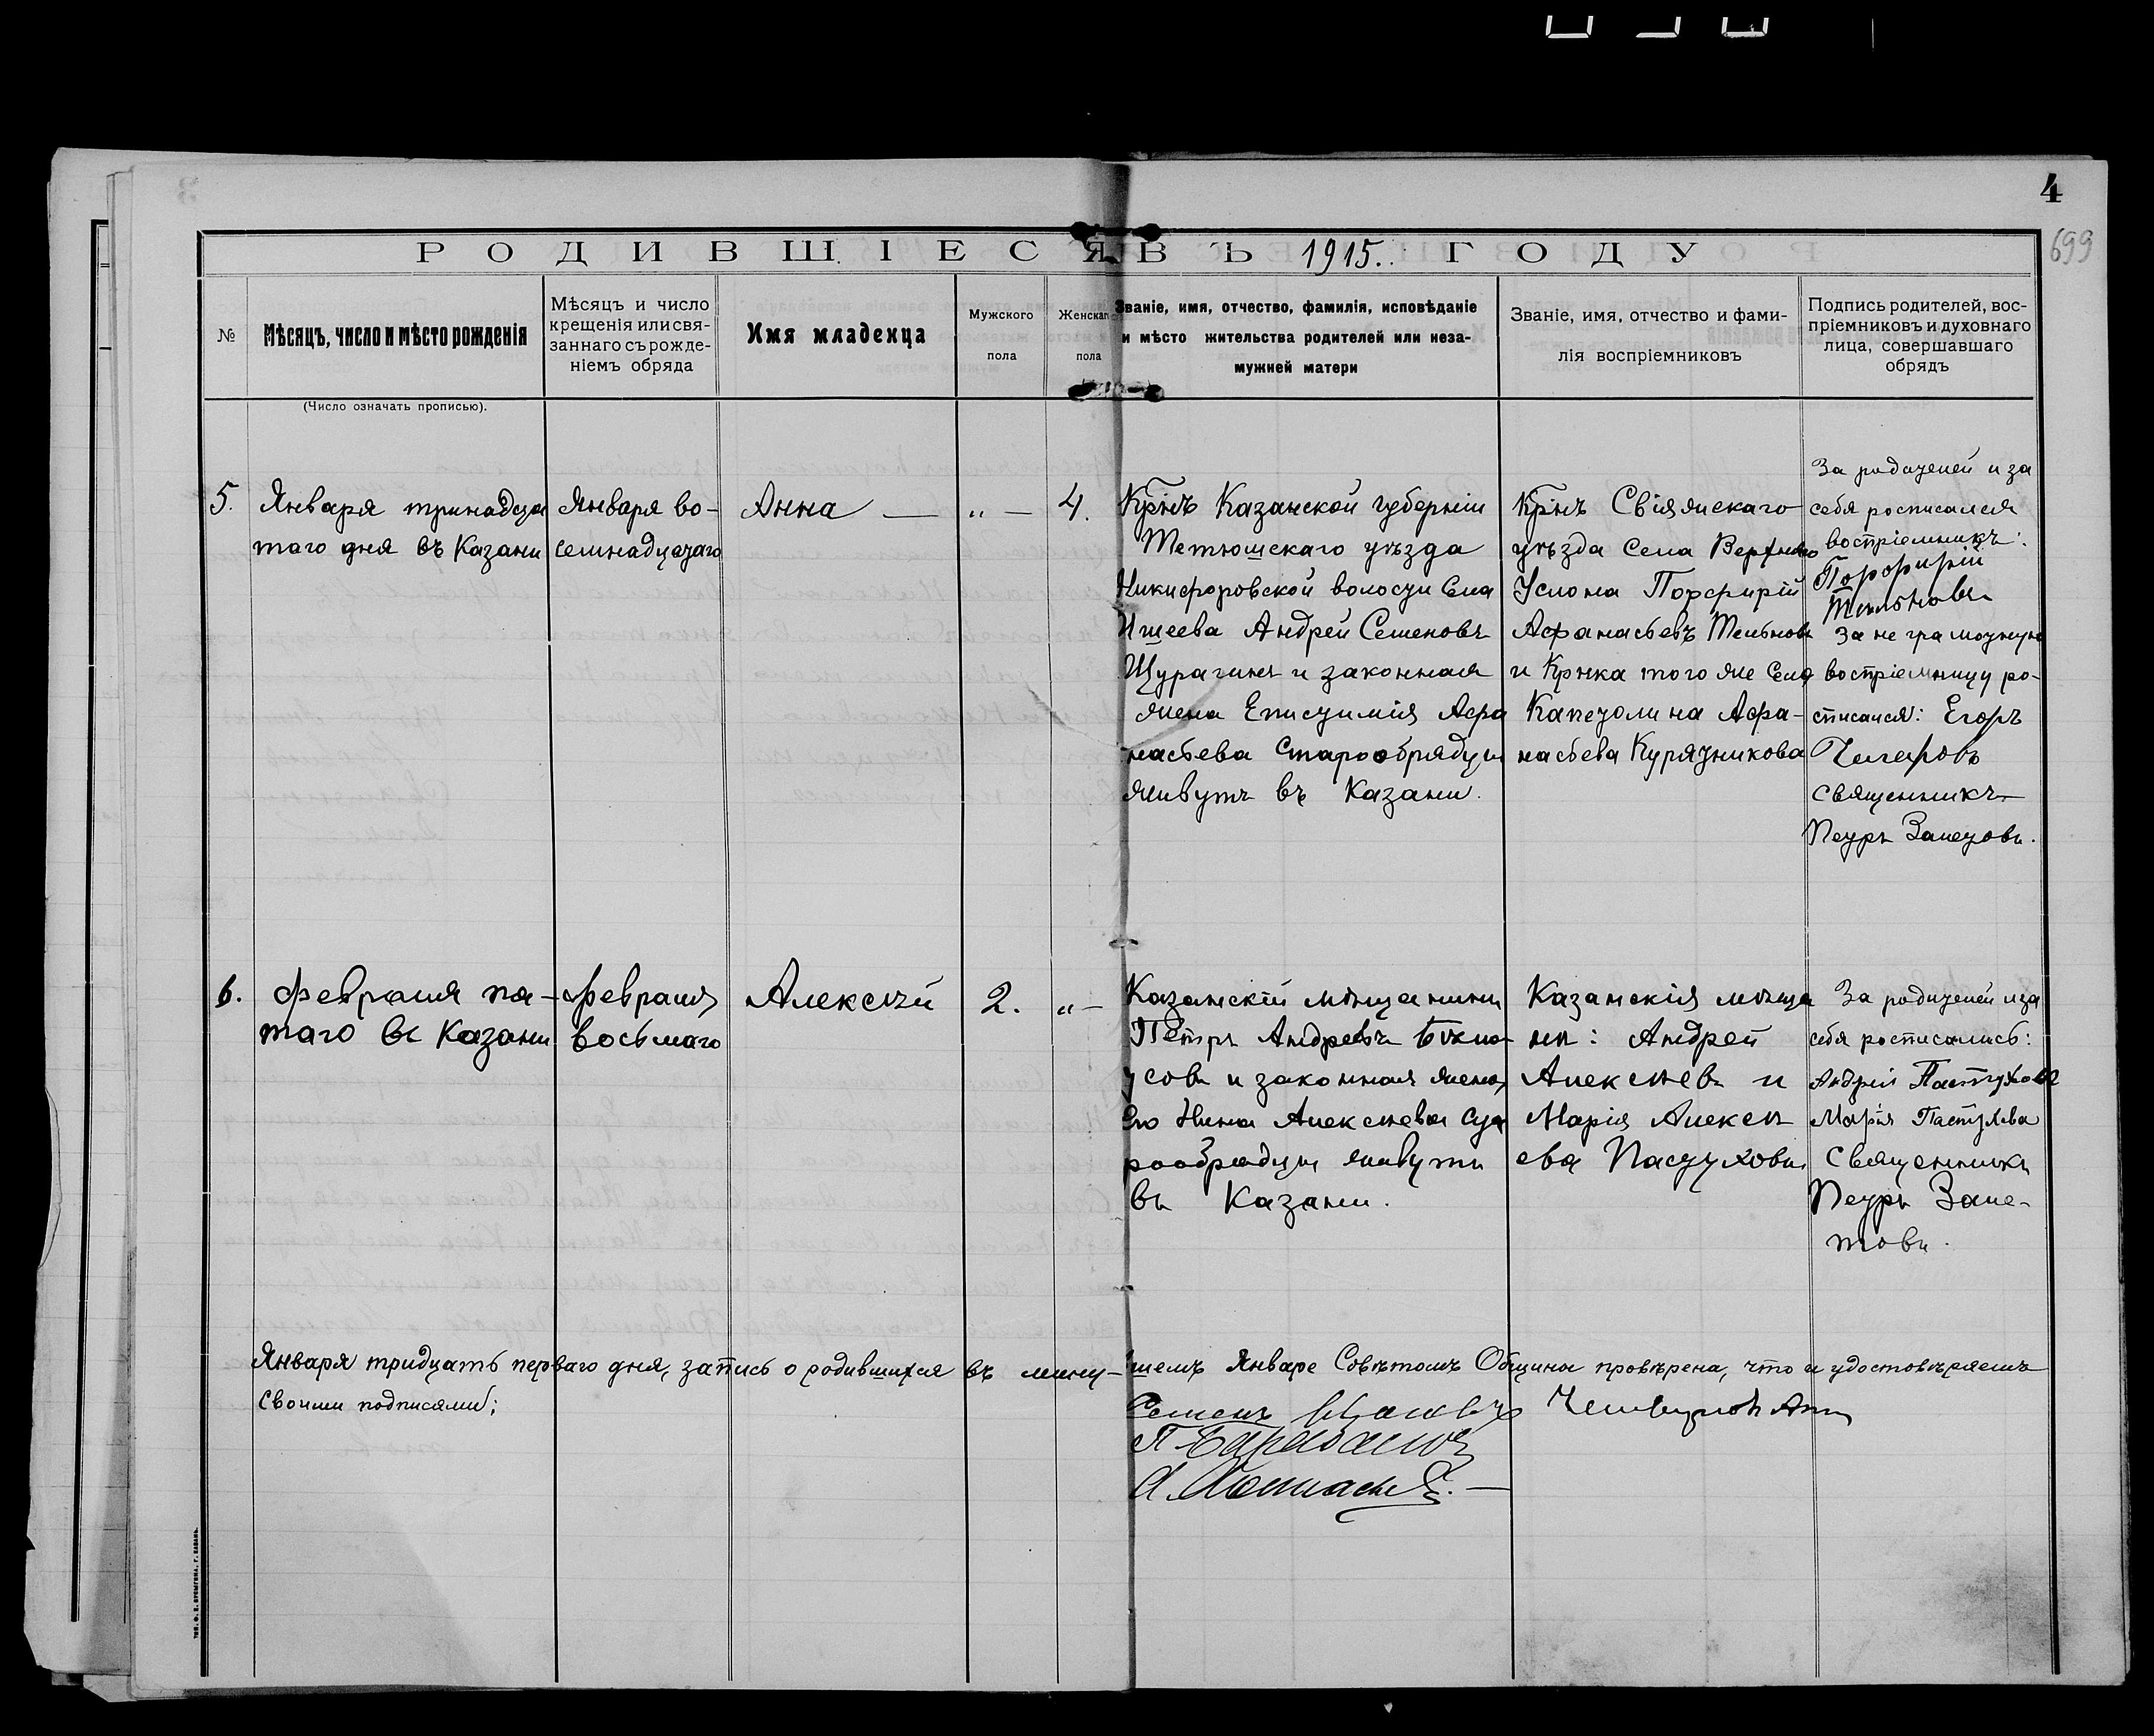 4
699
РОДИВШІЕСЯ ВЪ 1915. ГОДУ
№
Мѣсяцъ, число и мѣсто рожденія
(Число означать прописью).
Мѣсяцъ и число
крещенія или свя-
заннаго съ рожде-
ніемъ обряда
Имя младенца
Мужского
пола
Женскаго
пола
Званіе, имя, отчество, фамилія, исповѣданіе
и мѣсто жительства родителей или неза-
мужней матери
Званіе, имя, отчество и фами-
лія воспріемниковъ
Подпись родителей, вос-
пріемниковъ и духовнаго
лица, совершавшаго
обрядъ
5.
Января тринадца
таго дня въ Казани
Января во-
семнадцатаго
Анна —
„ —
4.
Крнъ Казанской губерніи
Тетюшскаго уѣзда
Никифоровской волости Села
Ишеева Андрей Семеновъ
Щурагинъ и законная
жена Епистимія Афа
насьева Старообрядцы
живутъ въ Казани.
Крнъ Свіяжскаго
уѣзда Села Верхняго
Услона Порфирій
Афанасьевъ Тельновъ
и Крнка того же Села
Капетолина Афа-
насьева Курятникова
За родителей и за
себя росписался
воспріемникъ:
Порфирій
Тельновъ
За не грамотную
воспріемницу ро-
списался: Егоръ
священникъ
Петръ Залетовъ.
6.
Февраля пя-
таго въ Казани
Февраля
восьмаго
Алексѣй
2.
„ —
Казанскій мѣщанинъ
Петръ Андревъ
и законная жена
его Нина Алексѣева Ста
рообрядцы живутъ
въ Казани.
Казанскія мѣща
не: Андрей
Алексѣевъ и
Марія Алексѣ
ева Пастуховы
За родителей и за
себя росписались:
Андрей Пастуховъ
Марія Пастухова
Священникъ
Петръ Зале-
товъ.
Января тридцать перваго дня, запись о родившихся въ мину-
вшемъ Январе Совѣтомъ Общины провѣрена, что и удостовѣряемъ
Своими подписями:
Семенъ